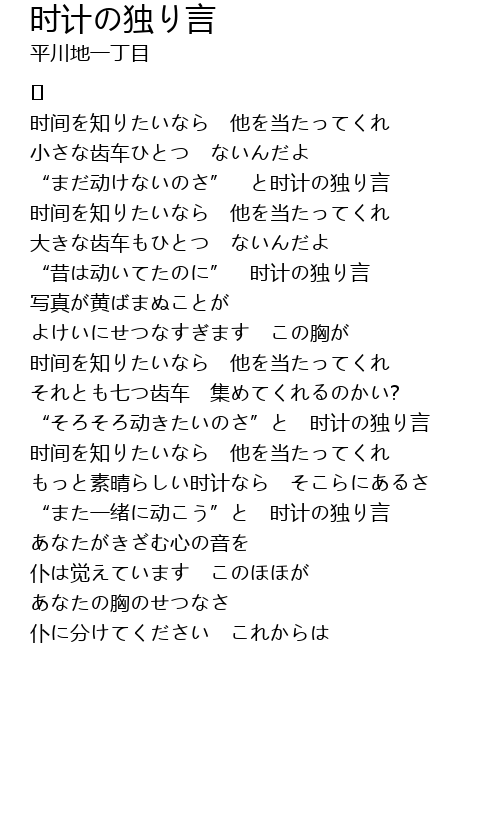 时计の独り言
平川地一丁目
[]
时间を知りたいなら　他を当たってくれ
小さな齿车ひとつ　ないんだよ
“まだ动けないのさ”　と时计の独り言
时间を知りたいなら　他を当たってくれ
大きな齿车もひとつ　ないんだよ
“昔は动いてたのに”　时计の独り言
写真が黄ばまぬことが
よけいにせつなすぎます　この胸が
时间を知りたいなら　他を当たってくれ
それとも七つ齿车　集めてくれるのかい?
“そろそろ动きたいのさ”と　时计の独り言
时间を知りたいなら　他を当たってくれ
もっと素晴らしい时计なら　そこらにあるさ
“また一绪に动こう”と　时计の独り言
あなたがきざむ心の音を
仆は觉えています　このほほが
あなたの胸のせつなさ
仆に分けてください　これからは